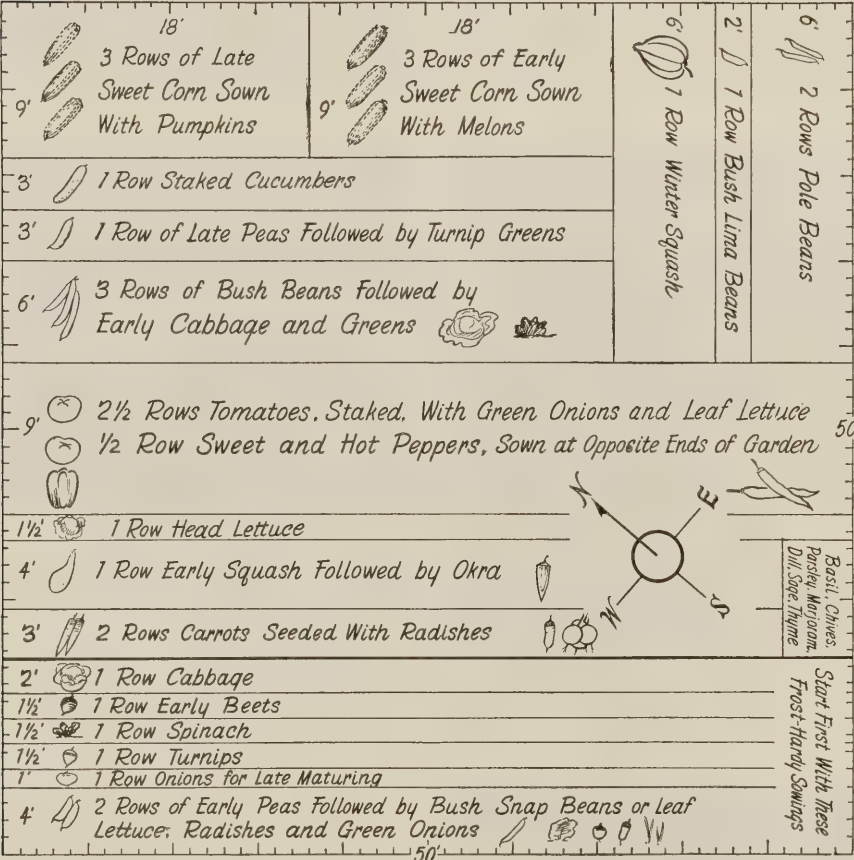 18'
9'
3 Rows of Late
Sweet Corn Sown
With Pumpkins
18'
9'
3 Rows of Early
Sweet Corn Sown
With Melons
6'
1 Row Winter Squash
2'
1 Row Bush Lima Beans
6'
2 Rows Pole Beans
3'
1 Row Staked Cucumbers
3'
1 Row of Late Peas Followed by Turnip Greens
6'
3 Rows of Bush Beans Followed by
Early Cabbage and Greens
9'
2½ Rows Tomatoes. Staked, With Green Onions and Leaf Lettuce
½ Row Sweet and Hot Peppers, Sown at Opposite Ends of Garden
50
N
E
W
S
1½'
1 Row Head Lettuce
4'
1 Row Early Squash Followed by Okra
3'
2 Rows Carrots Seeded With Radishes
Basil, Chives,
Parsley, Marjoram,
Dill, Sage, Thyme
2'
1 Row Cabbage
1½'
1 Row Early Beets
1½'
1 Row Spinach
1½'
1 Row Turnips
1'
1 Row Onions for Late Maturing
4'
2 Rows of Early Peas Followed by Bush Snap Beans or Leaf
Lettuce, Radishes and Green Onions
Start First With These
Frost-Hardy Sowings
50'